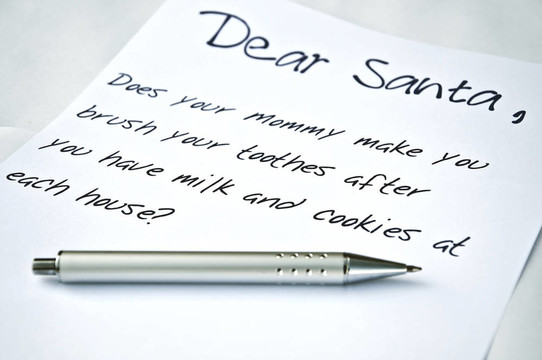 Dear Santa,
Does your mommy make you
brush your toothes after
you have milk and cookies at
each house?